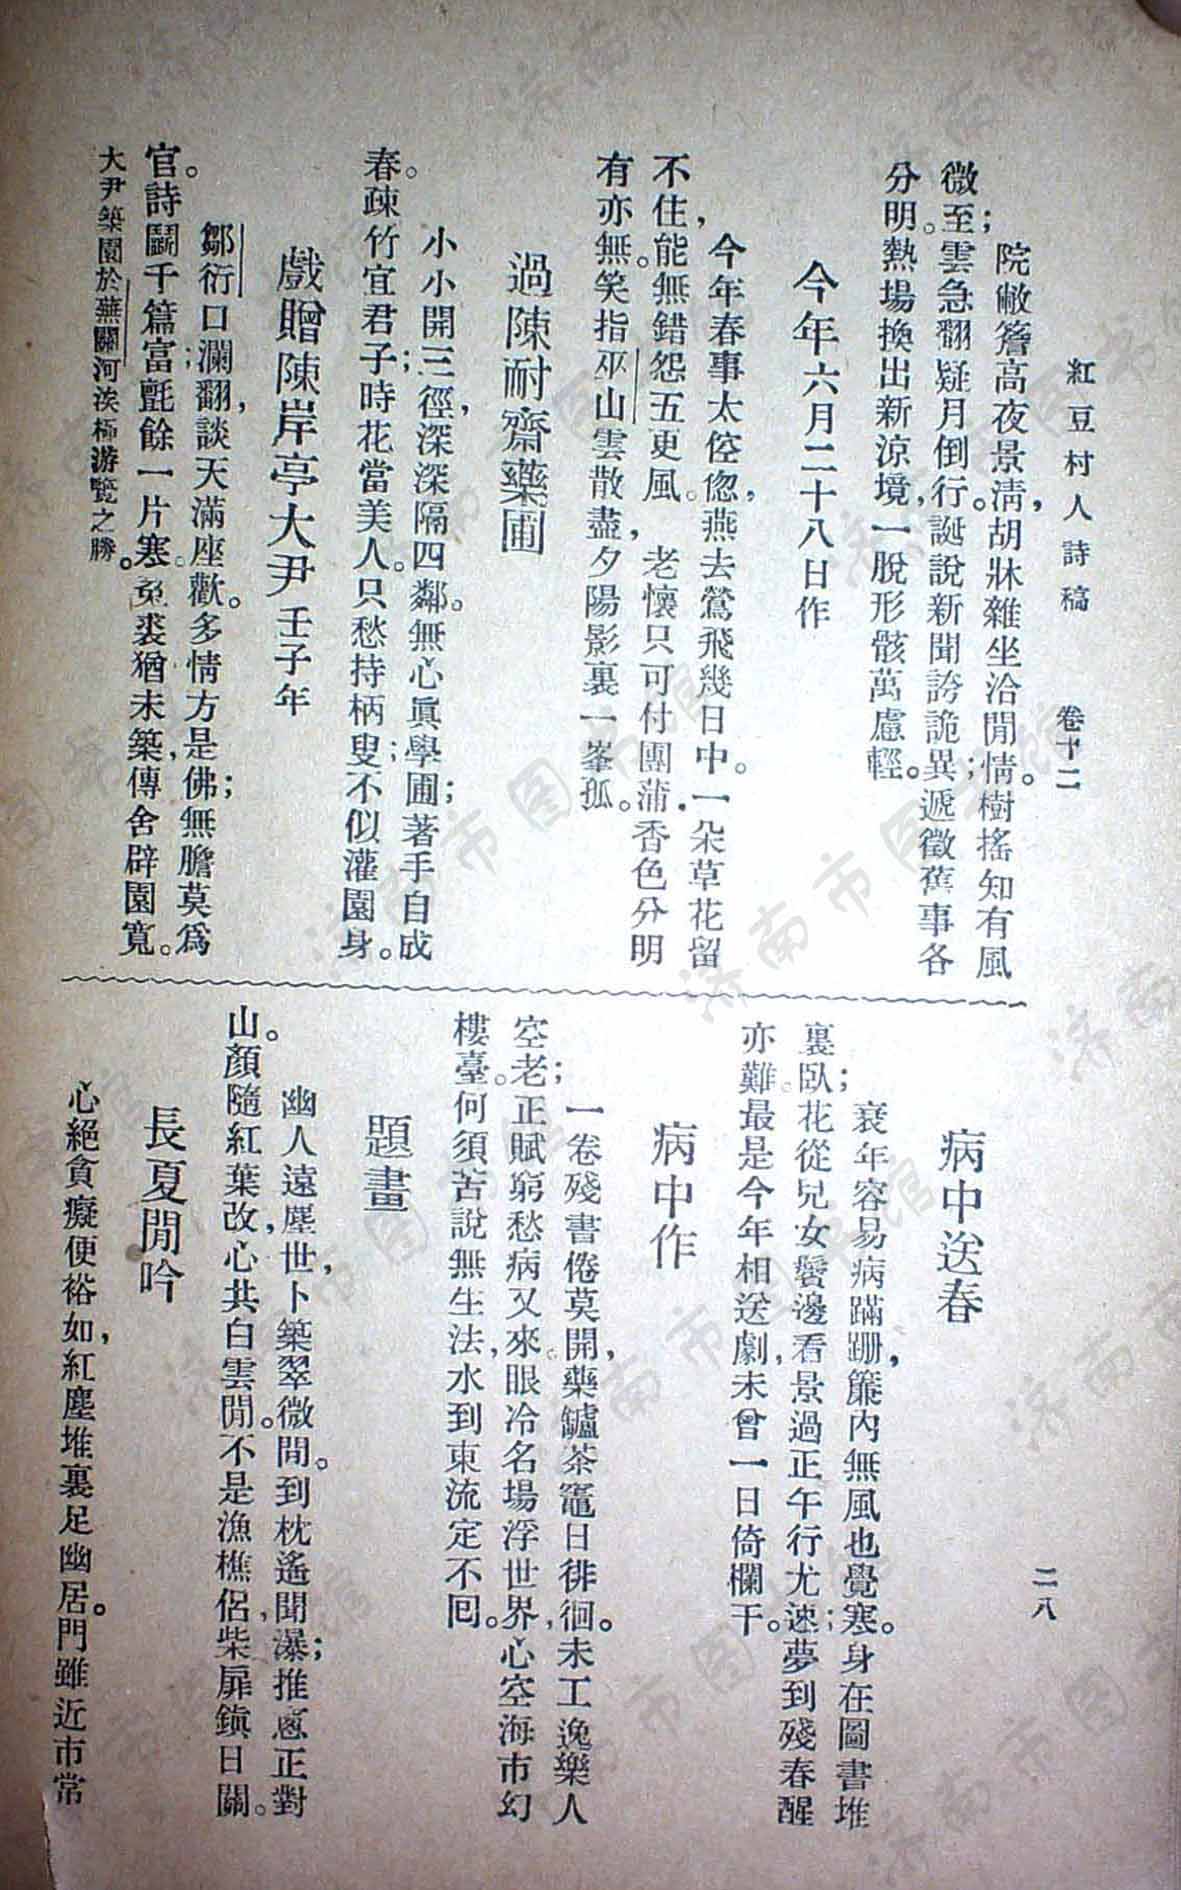 紅豆村人詩稿　卷十二　二八
院敝簷高夜景清，胡牀雜坐洽閒情。樹搖知有風
微至；雲急翻疑月倒行。誕說新聞誇詭異；遞徵舊事各
分明。熱場換出新涼境，一脫形骸萬慮輕。
今年六月二十八日作
今年春事太倥偬，燕去鶯飛幾日中。一朵草花留
不住，能無錯怨五更風。　老懷只可付團蒲，香色分明
有亦無。笑指巫山雲散盡，夕陽影裏一峯孤。
過陳耐齋藥圃
小小開三徑，深深隔四鄰。無心眞學圃；著手自成
春。疎竹宜君子；時花當美人。只愁持柄叟；不似灌園身。
戲贈陳岸亭大尹　壬子年
鄒衍口瀾翻，談天滿座歡。多情方是佛；無膽莫爲
官。詩鬬千篇富；氈餘一片寒。菟裘猶未築，傳舍辟園寬。
大尹築園於蕪關河涘極游覽之勝。
病中送春
衰年容易病蹣跚，簾內無風也覺寒。身在圖書堆
裏臥；花從兒女鬢邊看。景過正午行尤速；夢到殘春醒
亦難。最是今年相送劇，未曾一日倚欄干。
病中作
一卷殘書倦莫開，藥鑪茶竈日徘徊。未工逸樂人
空老；正賦窮愁病又來。眼冷名場浮世界，心空海市幻
樓臺。何須苦說無生法，水到東流定不囘。
題畫
幽人遠塵世，卜築翠微間。到枕遙聞瀑；推窻正對
山。顏隨紅葉改，心共白雲閒。不是漁樵侶，柴扉鎮日關。
長夏閒吟
心絕貪癡便裕如，紅塵堆裏足幽居。門雖近市常